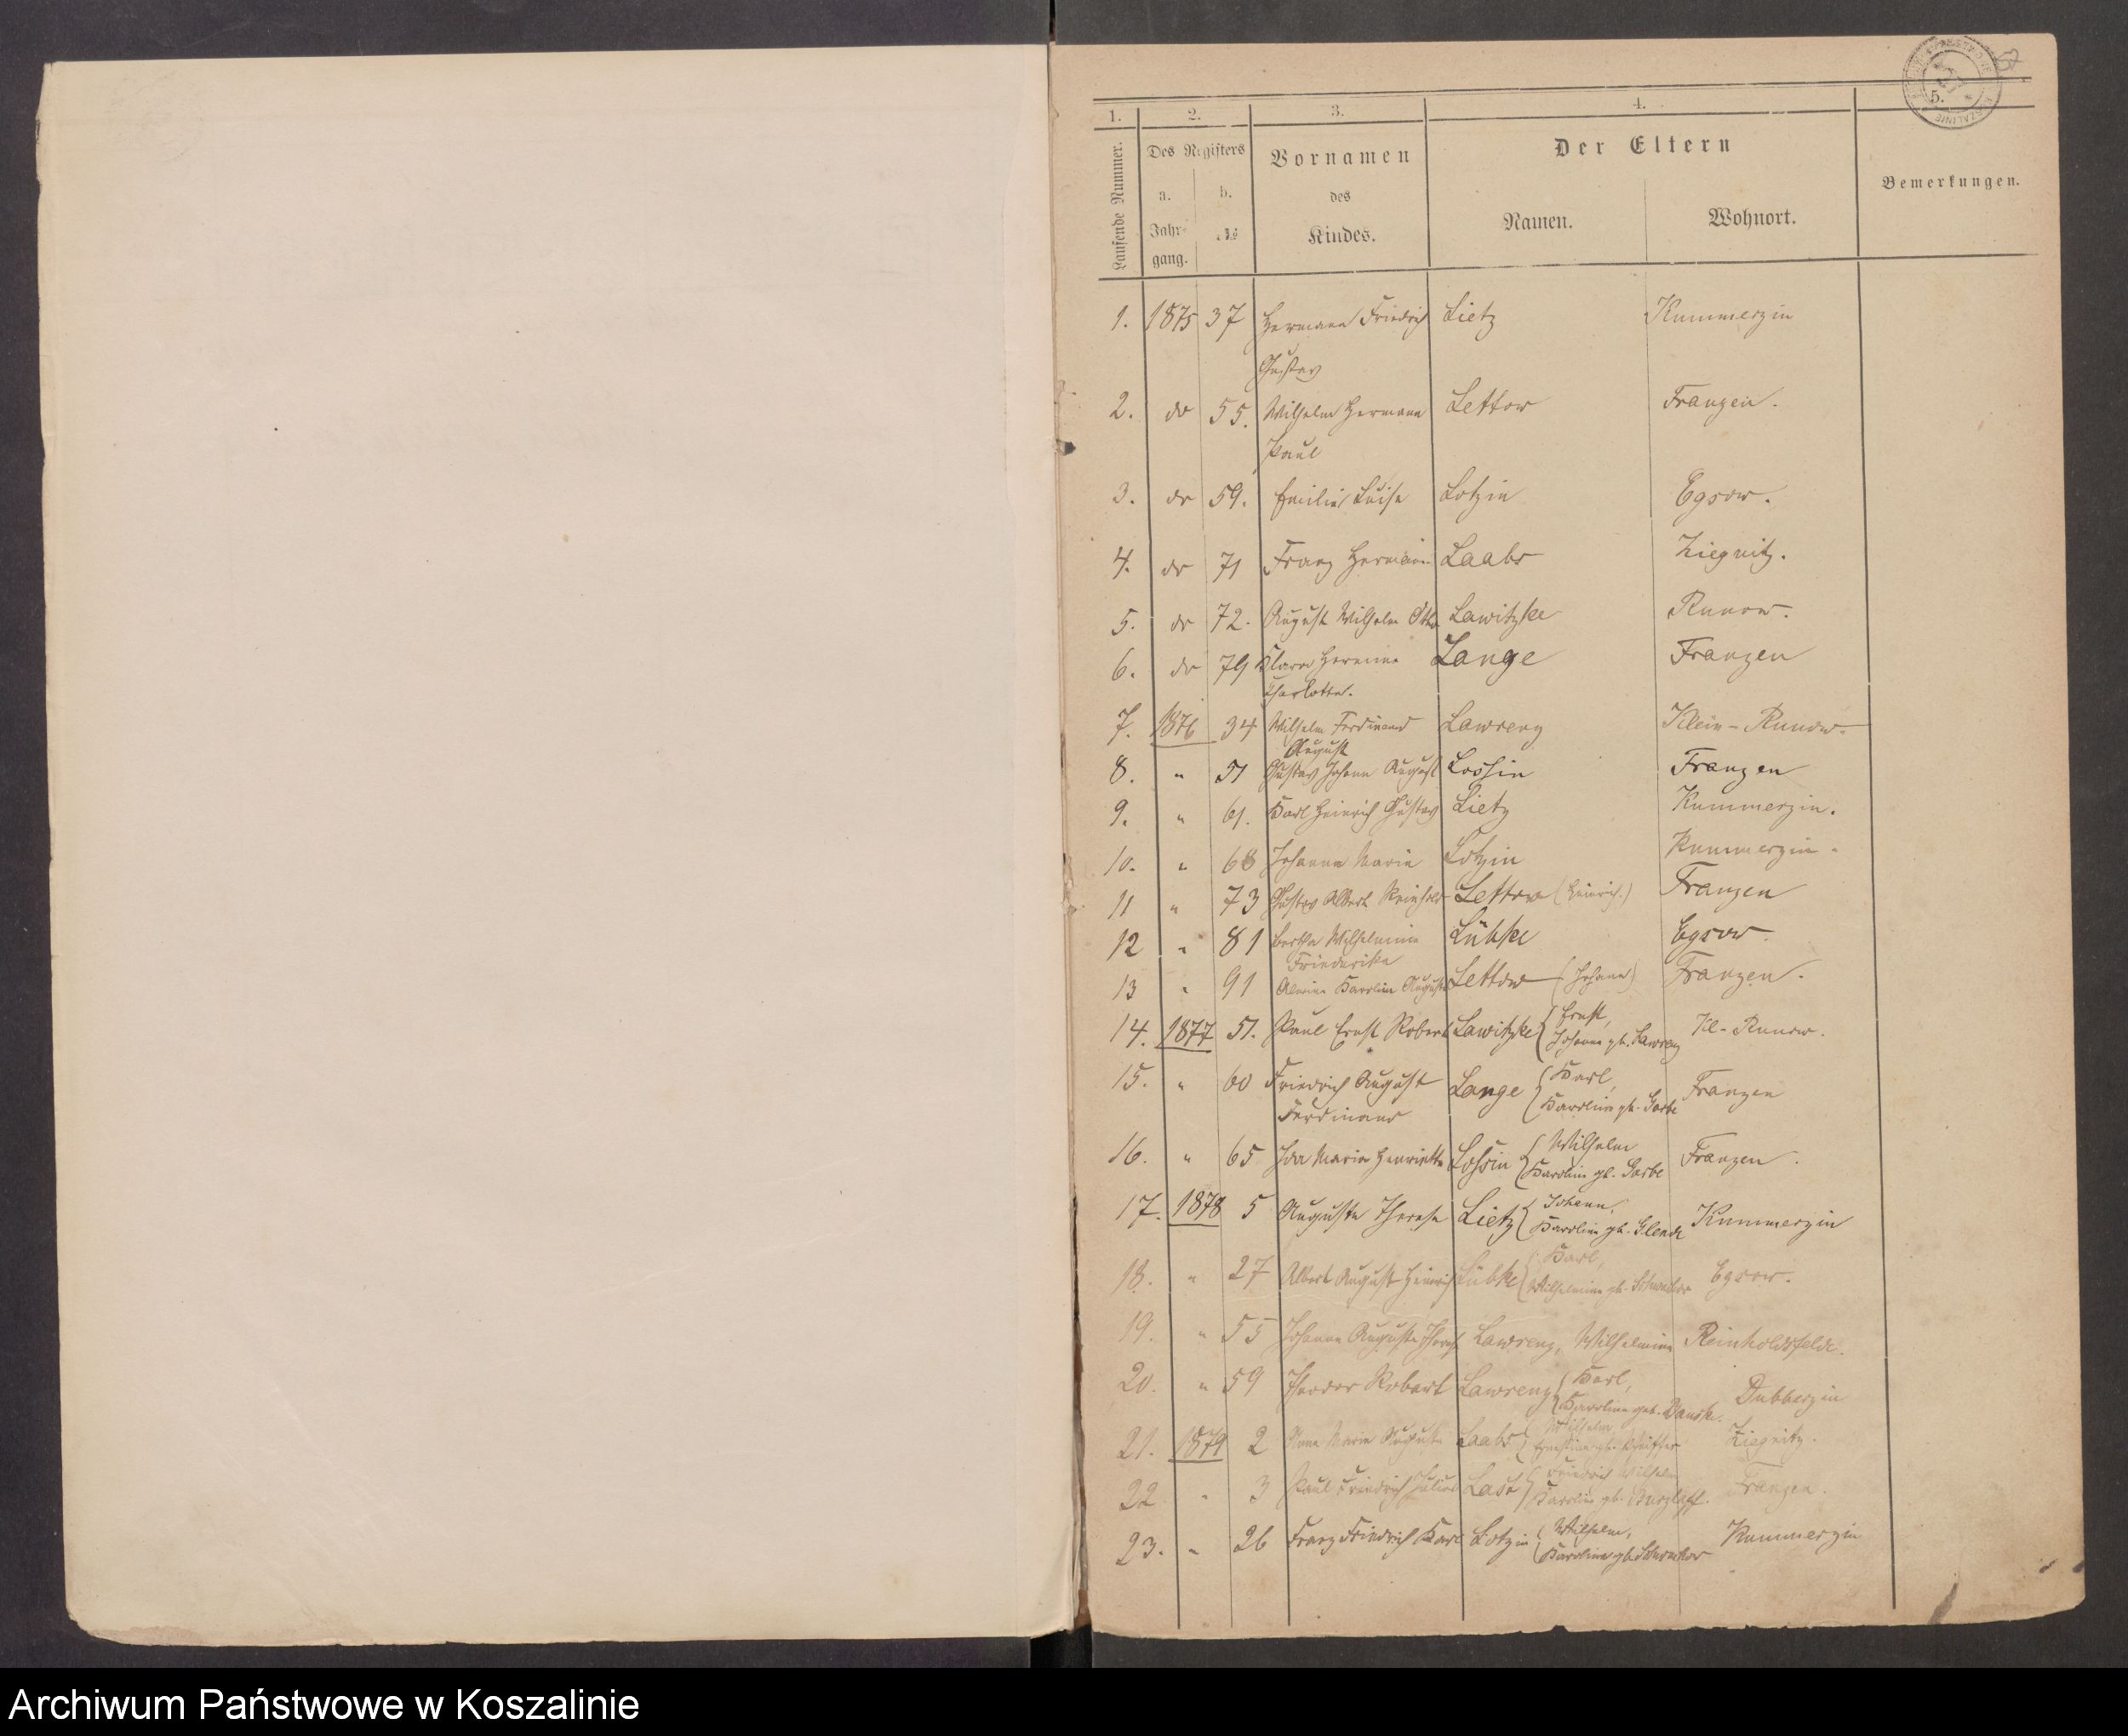 1. 2. 3. 4. 5.
Laufende Nummer. Des Registers Vornamen Der Eltern Bemerkungen.
a. b. des
Jahr- № Kindes. Namen. Wohnort.
gang.
1. 1875 37 Hermann Friedrich Lietz Kummerzin
Gustav
2. do 55. Wilhelm Hermann Lettow Franzen.
Paul
3. do 59. Emilie Luise Lotzin Egsow.
4. do 71 Franz Hermann Laabs Ziegnitz.
5. do 72. August Wilhelm Otto Lawitzke Runow.
6. do 79 Klara Hermine Lange Franzen
Charlotte.
7. 1876 34 Wilhelm Ferdinand Lawrenz Klein-Runow.
August
8. " 51 Gustav Johann August Lossin Franzen
9. " 61. Karl Heinrich Gustav Lietz Kummerzin.
10. " 68 Johanna Marie Lotzin Kummerzin.
11 " 73 Gustav Albert Reinhold Lettow (Heinrich.) Franzen
12 " 81 Bertha Wilhelmine Lübke Egsow.
Friederike
13 " 91 Karoline Auguste Lettow (Johann) Franzen.
14. 1877 51. Paul Ernst Robert Lawitzke { Ernst, Kl.-Runow.
Johanna gb. Lawrenz
15. " 60 Friedrich August Lange { Karl, Franzen
Ferdinand Karoline gb. Garbe
16. " 65 Ida Marie Henriette Lossin { Wilhelm Franzen.
Karoline gb. Garbe
17. 1878 5 Auguste Therese Lietz { Johann, Kummerzin
Karoline gb. Glende
18. " 27 Albert August Heinrich Lübke { Karl, Egsow.
Wilhelmine gb.
19. " 55 Johanna Auguste Lawrenz, Wilhelmine Reinholdsfelde.
20. " 59 Theodor Robert Lawrenz { Karl, Dubberzin
Karoline geb.
21. 1879 2 Anna Marie Auguste Laabs { Wilhelm Ziegnitz.
Ernestine gb.
22 " 3 Paul Friedrich Julius Last { Friedrich Wilhelm Franzen.
Karoline gb.
23. " 26 Franz Friedrich Karl Lotzin { Wilhelm, Kummerzin
Karoline gb.
Archiwum Państwowe w Koszalinie